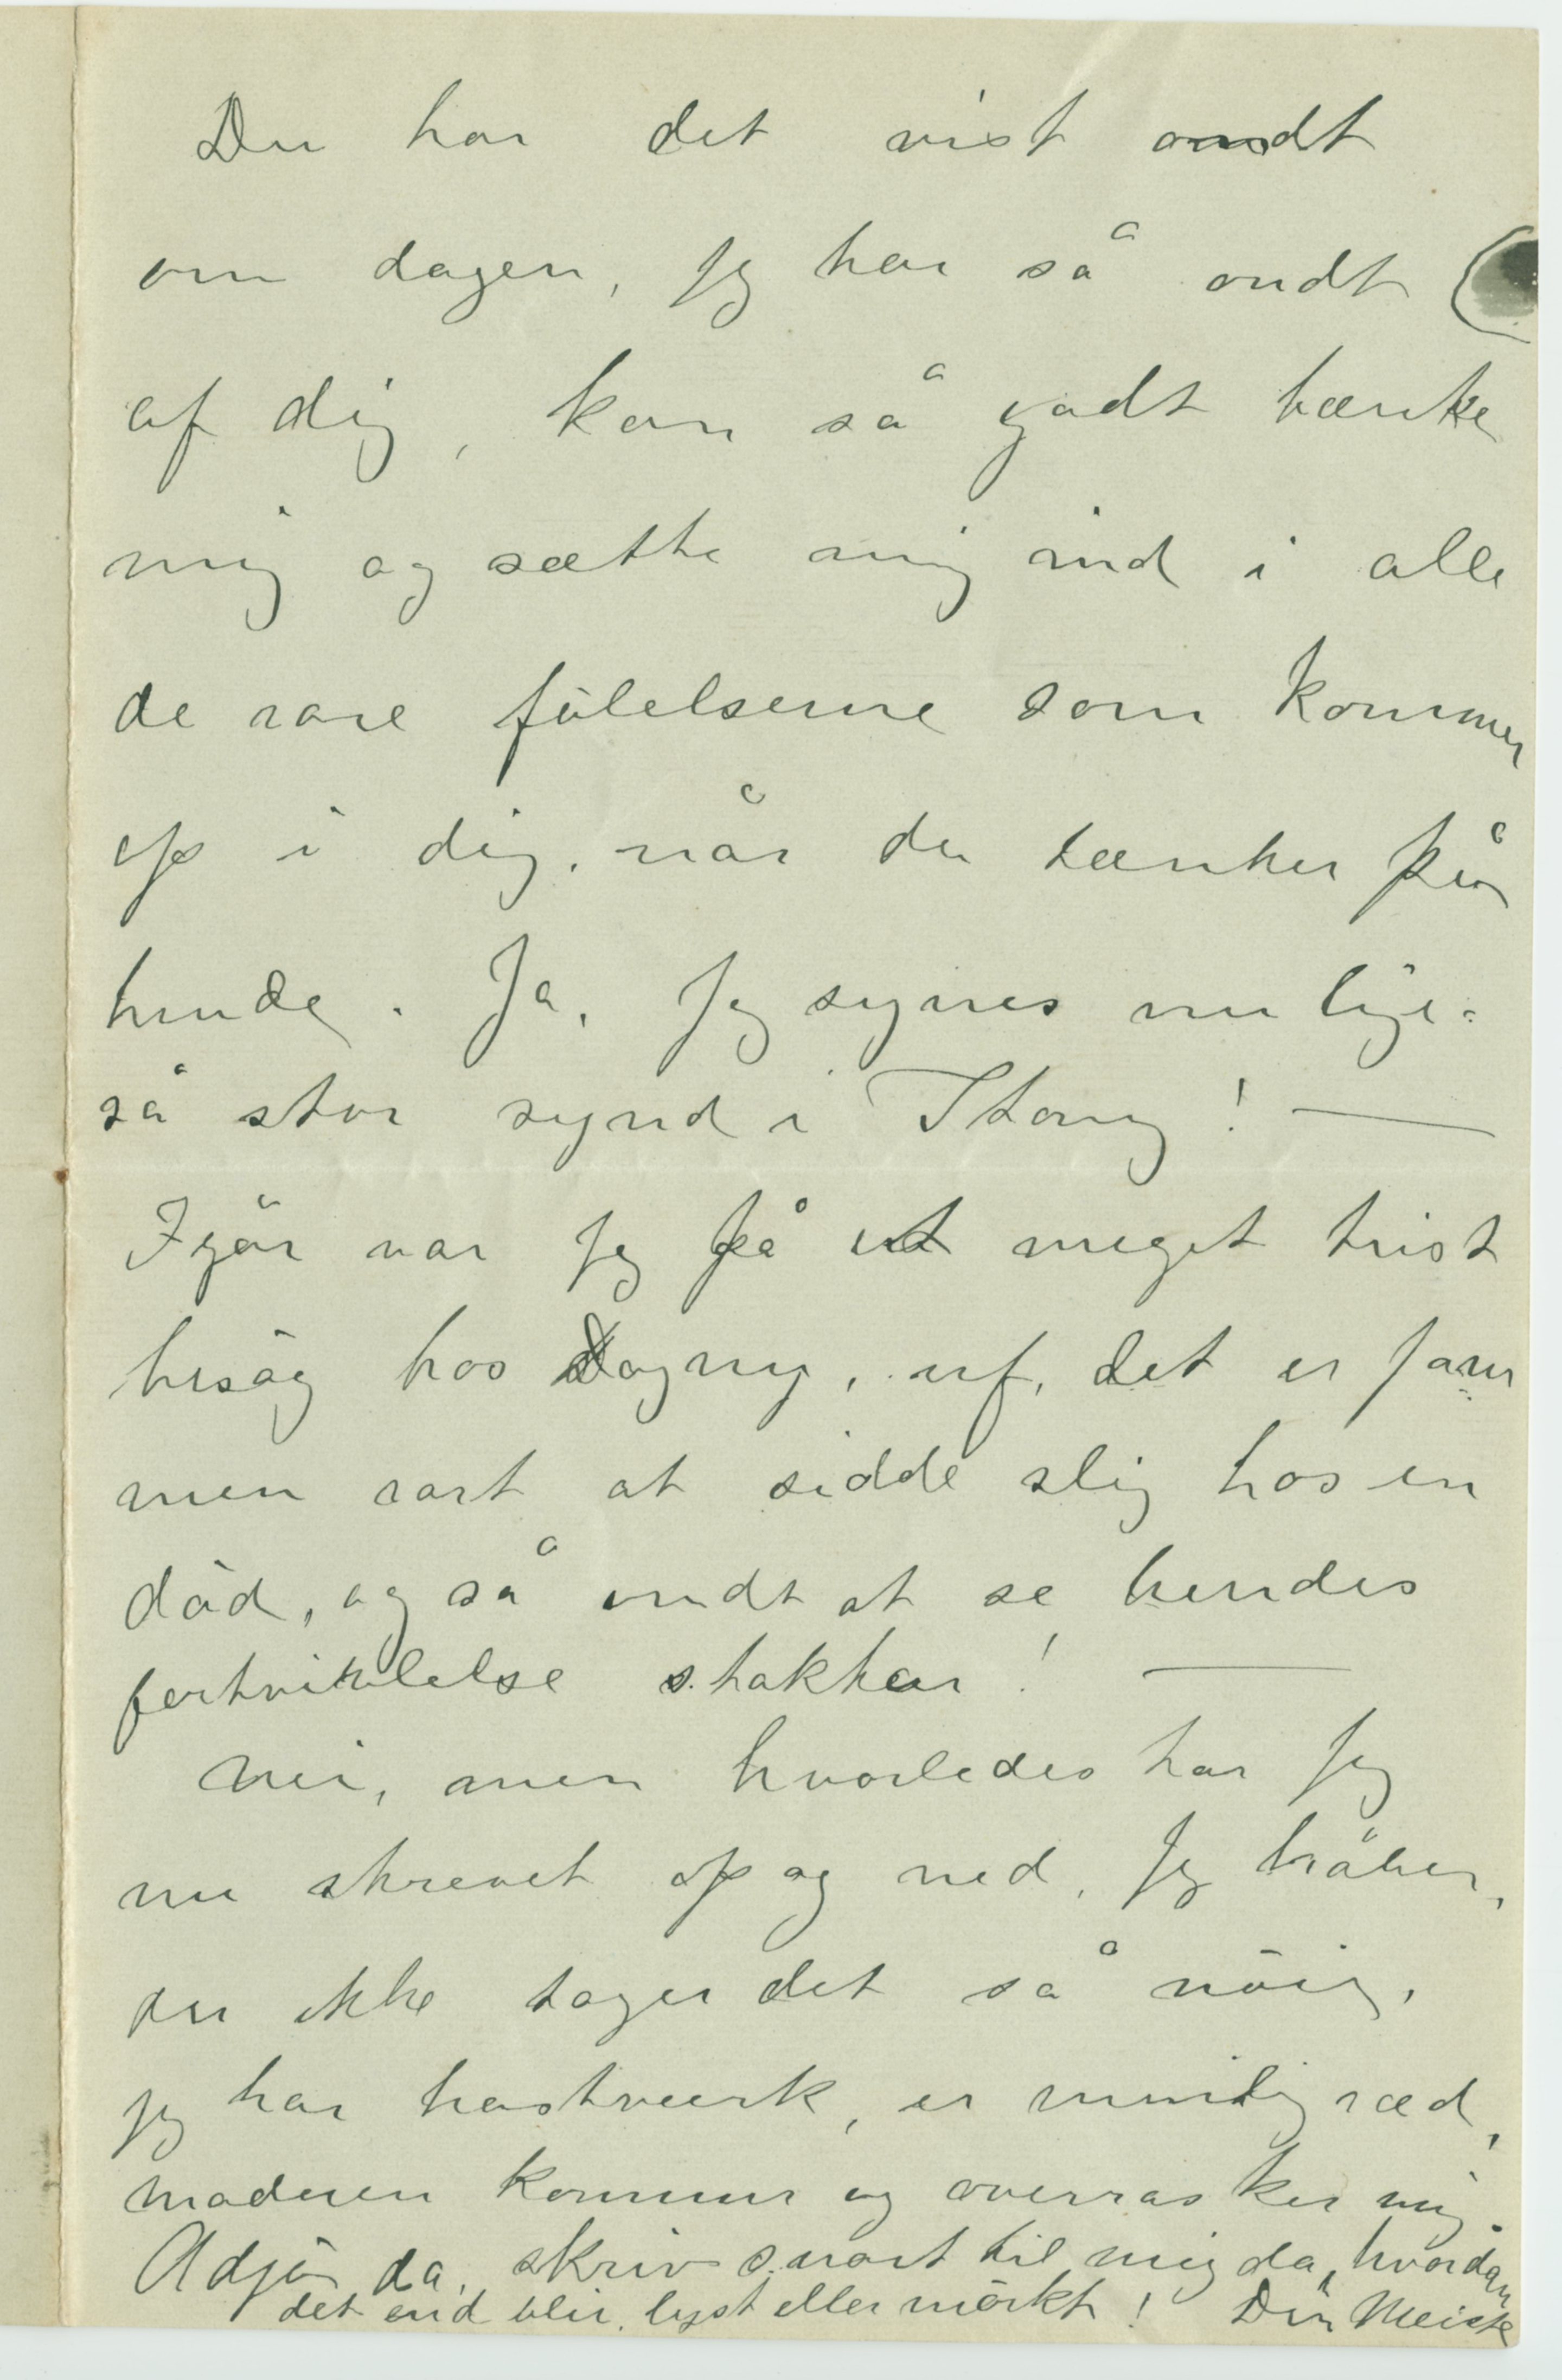 Du har det vist ondt
om dagen, jeg har så ondt
af dig, kan så godt tænke
mig og sætte mig ind i alle
de rare fölelserne som kommer
op i dig, når du tænker på
hende. Ja, jeg synes nu lige=
så stor synd i Thony! —
Igår var jeg på et meget trist
besög hos Dagny, uf, det er jam
men rart at sidde slig hos en
död, og så ondt at se hendes
fortvivlelse stakkar! —
Nei, men hvorledes har jeg
nu skrevet op og ned, jeg håber,
du ikke tager det så nöie,
jeg har hastværk, er nemlig ræd,
moderen kommer og overrasker mig.
Adjö da, skriv snart til mig da, hvordan
det end blir, lyst eller mörkt! Din Meisse